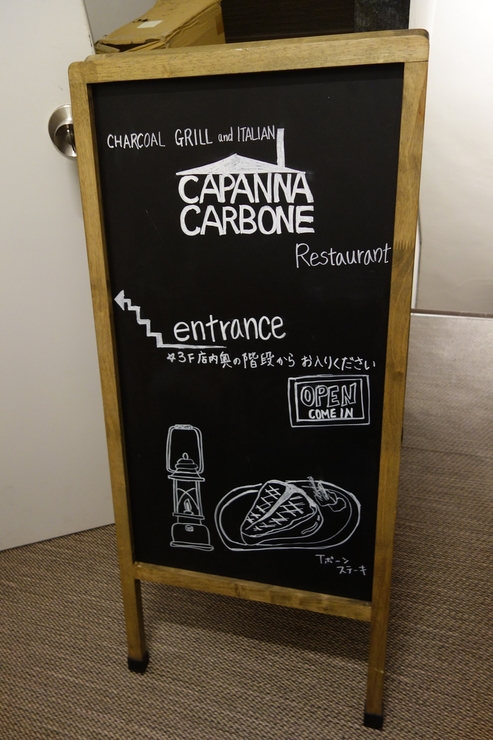 CHARCOAL GRILL and ITALIAN
CAPANNA
CARBONE
Restaurant
entrance
※3F店内奥の階段からお入りください
OPEN
COME IN
Tボーン
ステーキ